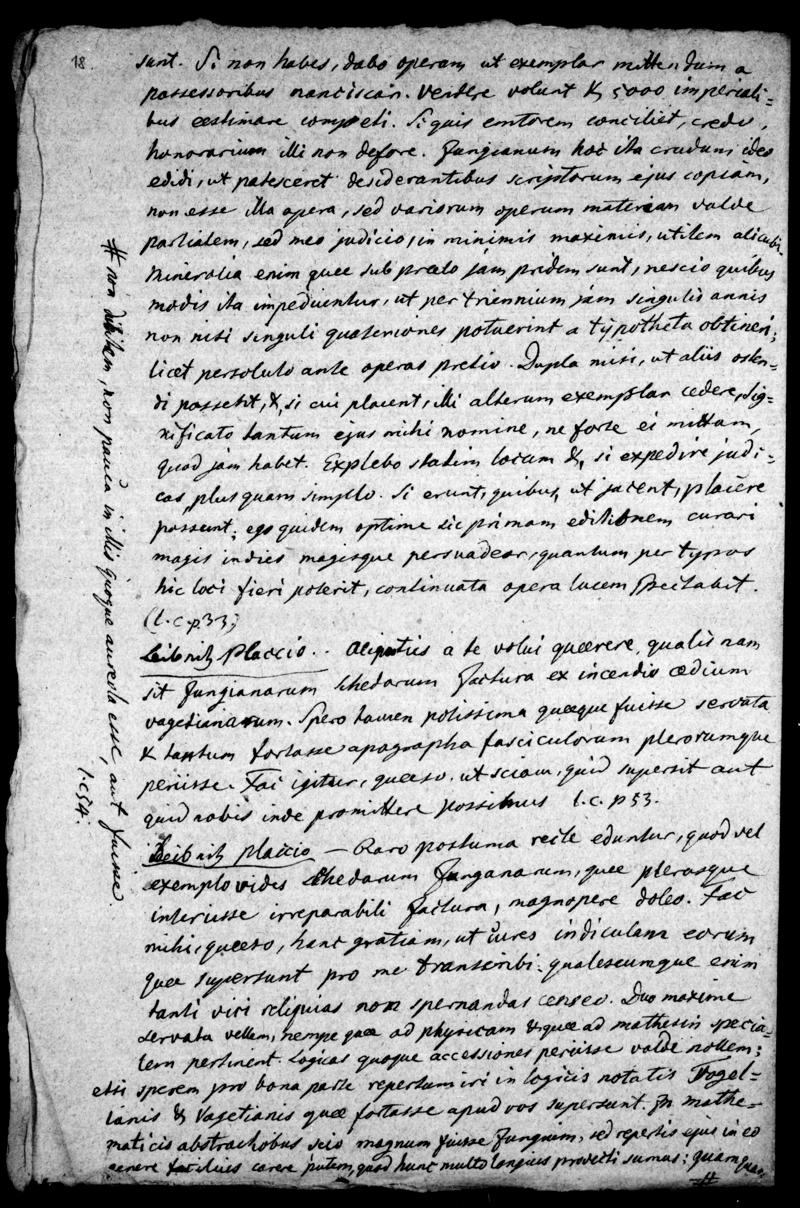 18.
sunt. Si non habes, dabo operam ut exemplar mittendum a
possessoribus nanciscar. Vendere volunt & 5000 imperiali=
bus aestimare competi. Si quis emtorem conciliet, credo,
honorarium illi non defore. Jungianum hoc ita crudum ideo
edidi, ut patesceret desiderantibus scriptorum ejus copiam,
non esse illa opera, sed variorum operum materiam valde
partialem, sed meo judicio, in minimis maximis, utilem alicubi.
Mineralia enim quae sub praelo jam pridem sunt, nescio quibus
modis ita impediuntur, ut per triennium jam singulis annis
non nisi singuli quaterniones potuerint a typotheta obtineri;
licet persoluto ante operas pretio. Dupla misi, ut aliis osten=
di possetit, &, si cui placent, illi alterum exemplar cedere, sig=
nificato tantum ejus mihi nomine, ne forte ei mittam,
quod jam habet. Explebo statim locum &, si expedire judi=
cas, plus quam simplo. Si erunt, quibus, ut jacent, placere
possunt; ego quidem optime sic primam editionem curari
magis indies magisque persuadeor, quantum per typos
hic loci fieri poterit, continuata opera lucem spectabit.
(l. c. p 33)
Leibnitz Placcio. . Aliquoties a te volui quaerere, qualis nam
sit Jungianarum schedarum jactura ex incendio aedium
vagetianarum. Spero tamen potissima quaeque fuisse servata
& tantum fortasse apographa fasciculorum plerorumque
periisse. Fac igitur, quaeso, ut sciam, quid supersit aut
quid nobis inde promittere possimus l. c. p 53.
Leibnitz placcio — Raro postuma recte eduntur, quod vel
exemplo vides schedarum Junganarum, quae plerasque
interiisse irreparabili jactura, magnopere doleo. Fac
mihi, quaeso, hanc gratiam, ut cures indiculum eorum
quae supersunt pro me transcribi: qualescumque enim
tanti viri reliquias non spernandas censeo. Duo maxime
servata vellem, nempe quae ad physicam & quae ad mathesin specia=
tem pertinent. Logicas quoque accessiones periisse valde nollem;
etsi sperem pro bona parte repertum iri in logicis notatis Vogel=
ianis & Vagetianis quae fortasse apud vos supersunt. In mathe=
maticis abstractiobus scio magnum fuisse Jungium, sed repertis ejus in eo
genere facilius carere putem, quod hunc multo longius provecti sumus: quamquam
#
# non dubitem, non pauca in illis quoque aureola esse, aut fuisse.
l. c 54.